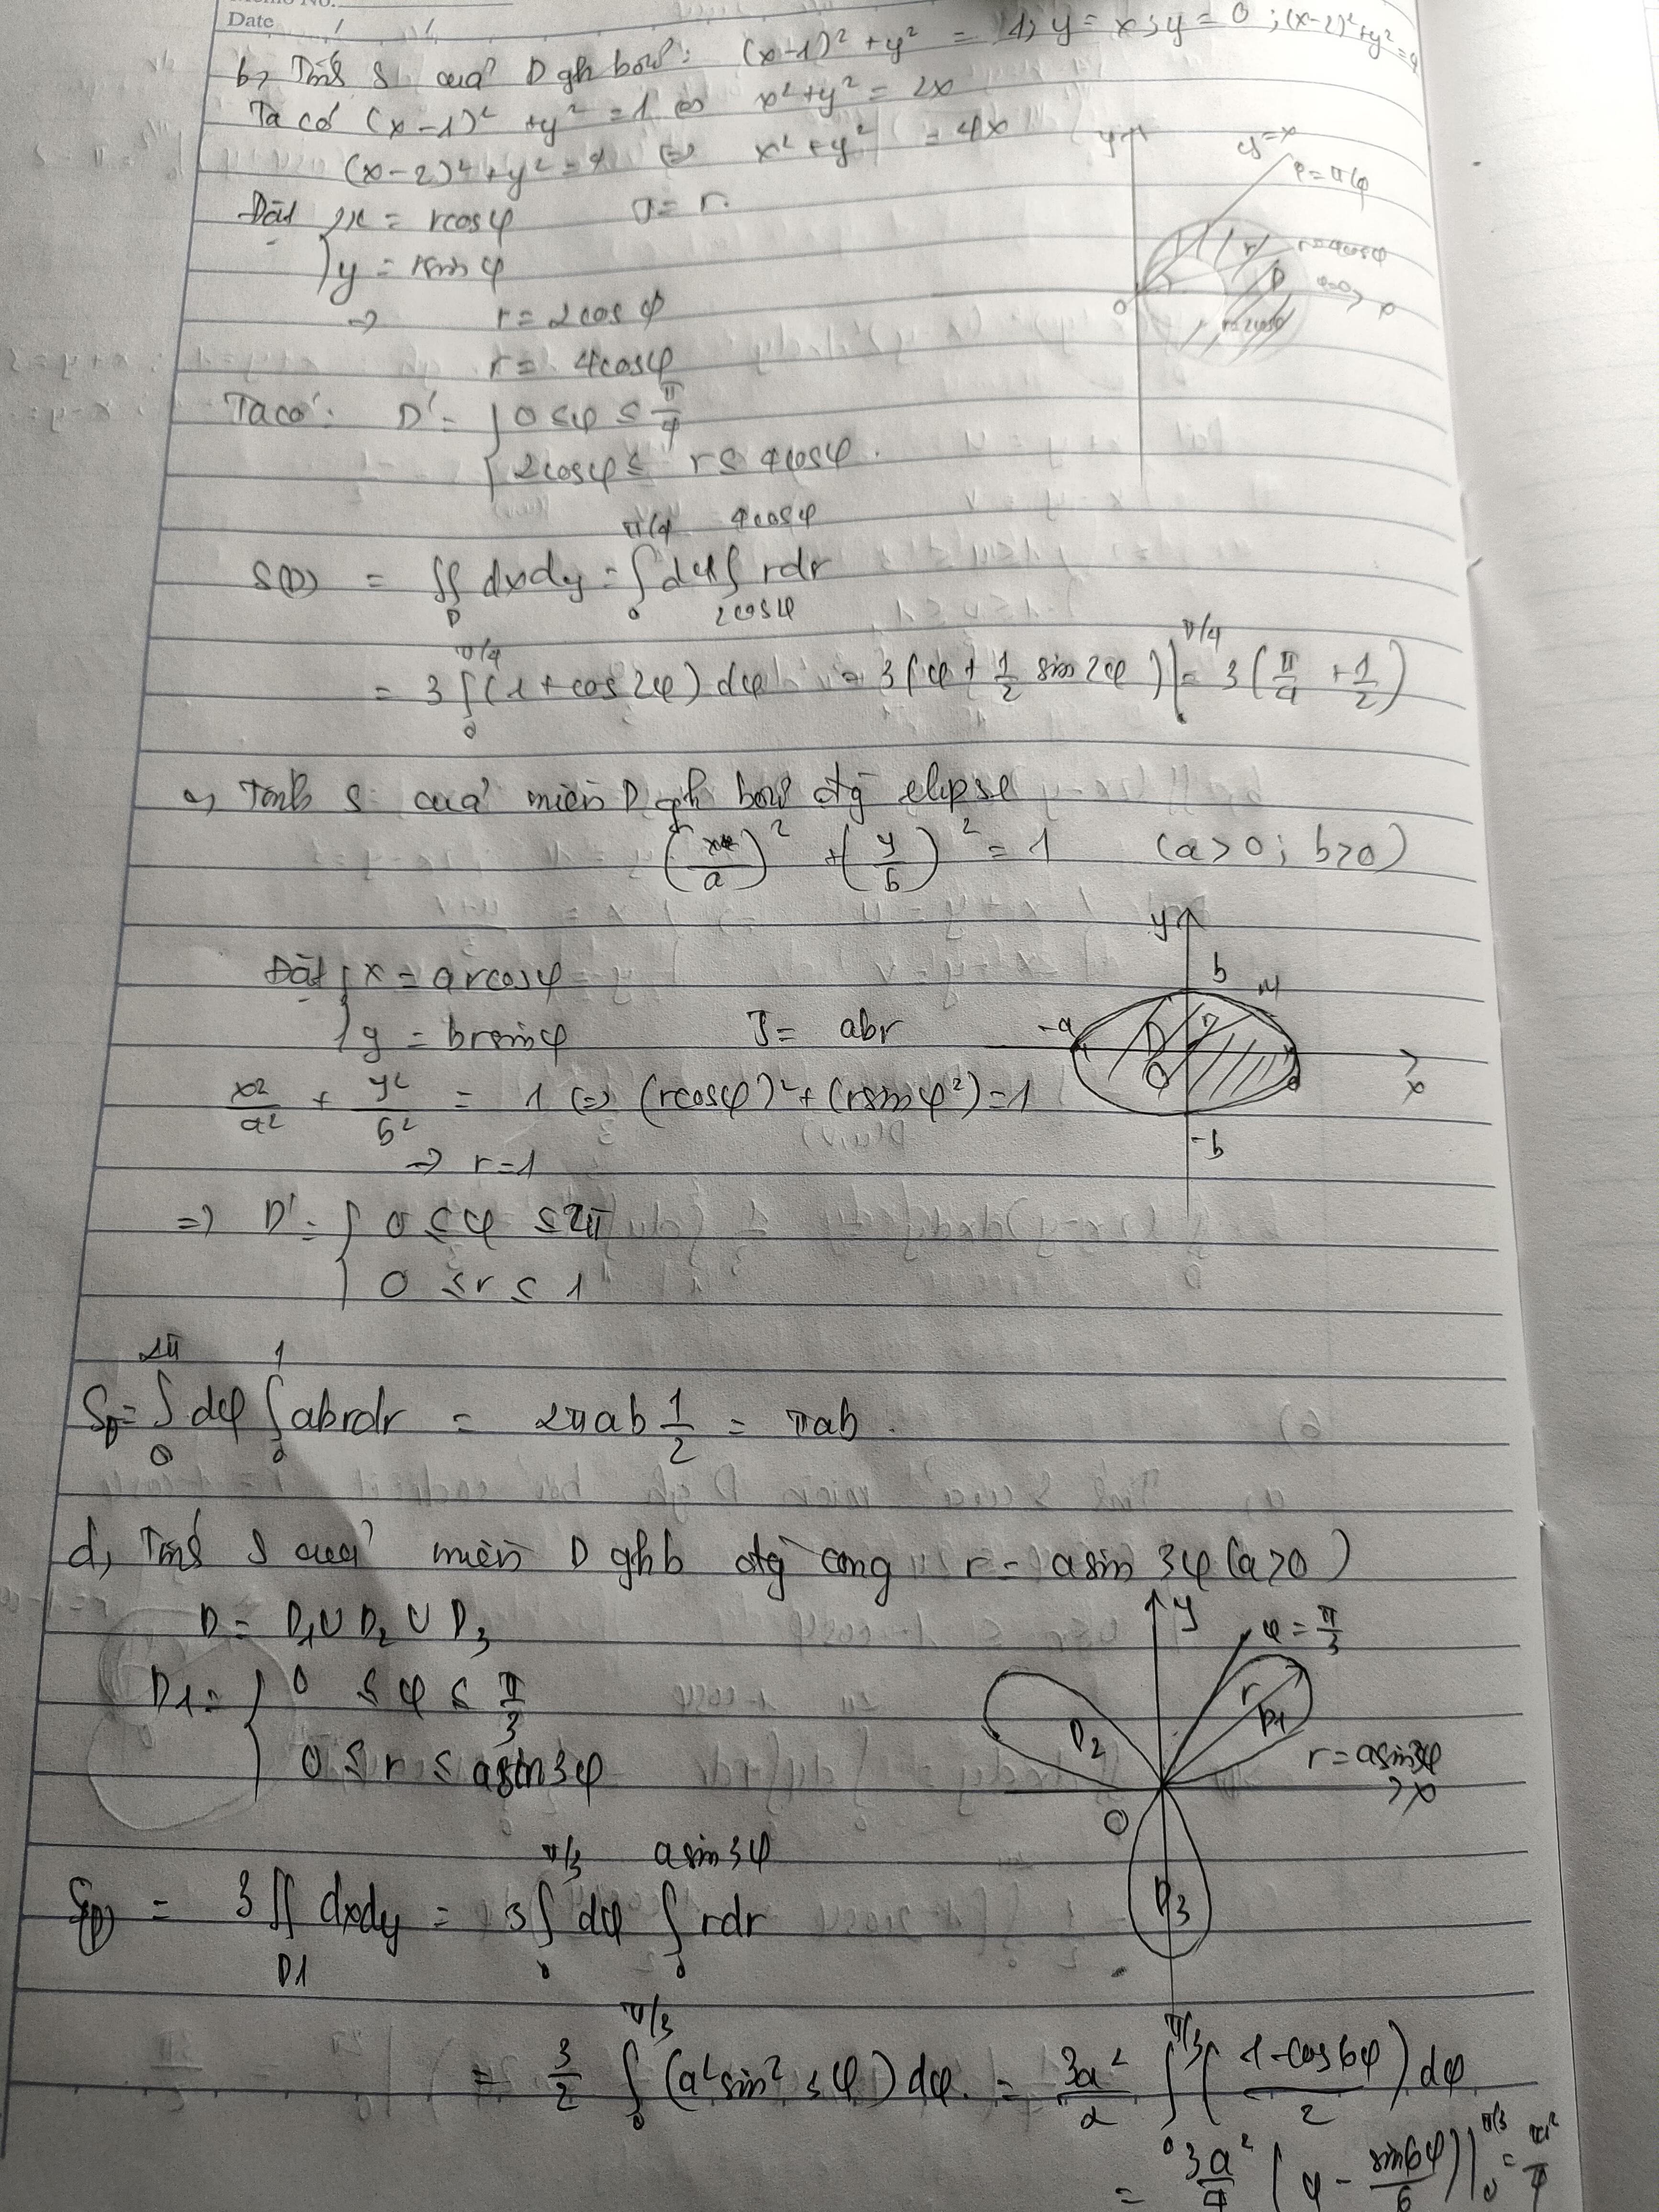 Memo No.
Date
b, Tính S của D ghbởi: (x-1)² + y² = 1, y = x; y = 0; (x-2)²+y²=4
Ta có (x-1)² + y² = 1 ⇔ x² + y² = 2x
(x-2)² + y² = 4 ⇔ x² + y² = 4x
Đặt { x = rcosφ J = r.
y = rsinφ
⇒ r = 2cosφ
r = 4cosφ
y
y=x
φ=π/4
r=4cosφ
r
D
φ=0
O
x
r=2cosφ
Ta có: D' = { 0 ≤ φ ≤ π/4
2cosφ ≤ r ≤ 4cosφ.
S(D) = ∬_D dxdy = ∫_0^{π/4} dφ ∫_{2cosφ}^{4cosφ} rdr
= 3 ∫_0^{π/4} (1 + cos2φ) dφ = 3(φ + 1/2 sin2φ)|^{π/4} = 3(π/4 + 1/2)
c, Tính S của miền D gh bởi đg elipse
(x/a)² + (y/b)² = 1 (a > 0; b > 0)
Đặt { x = arcosφ
y = brsinφ J = abr
x²/a² + y²/b² = 1 ⇔ (rcosφ)² + (rsinφ²) = 1
⇒ r = 1
y
b
M
-a
r
D
O
a
x
-b
⇒ D' = { 0 ≤ φ ≤ 2π
0 ≤ r ≤ 1
S_D = ∫_0^{2π} dφ ∫_0^1 abrdr = 2πab 1/2 = πab.
d, Tính S của miền D ghb đg cong r = asin3φ (a>0)
D = D₁ ∪ D₂ ∪ D₃
D1 = { 0 ≤ φ ≤ π/3
0 ≤ r ≤ asin3φ
y
φ = π/3
r
D1
D2
r = asin3φ
O
x
D3
S(D) = 3∬_{D1} dxdy = 3∫_0^{π/3} dφ ∫_0^{asin3φ} rdr
= 3/2 ∫_0^{π/3} (a²sin²3φ) dφ. = 3a²/2 ∫_0^{π/3} ((1-cos6φ)/2) dφ
= 3a²/4 (φ - sin6φ/6)|_0^{π/3} = πa²/4